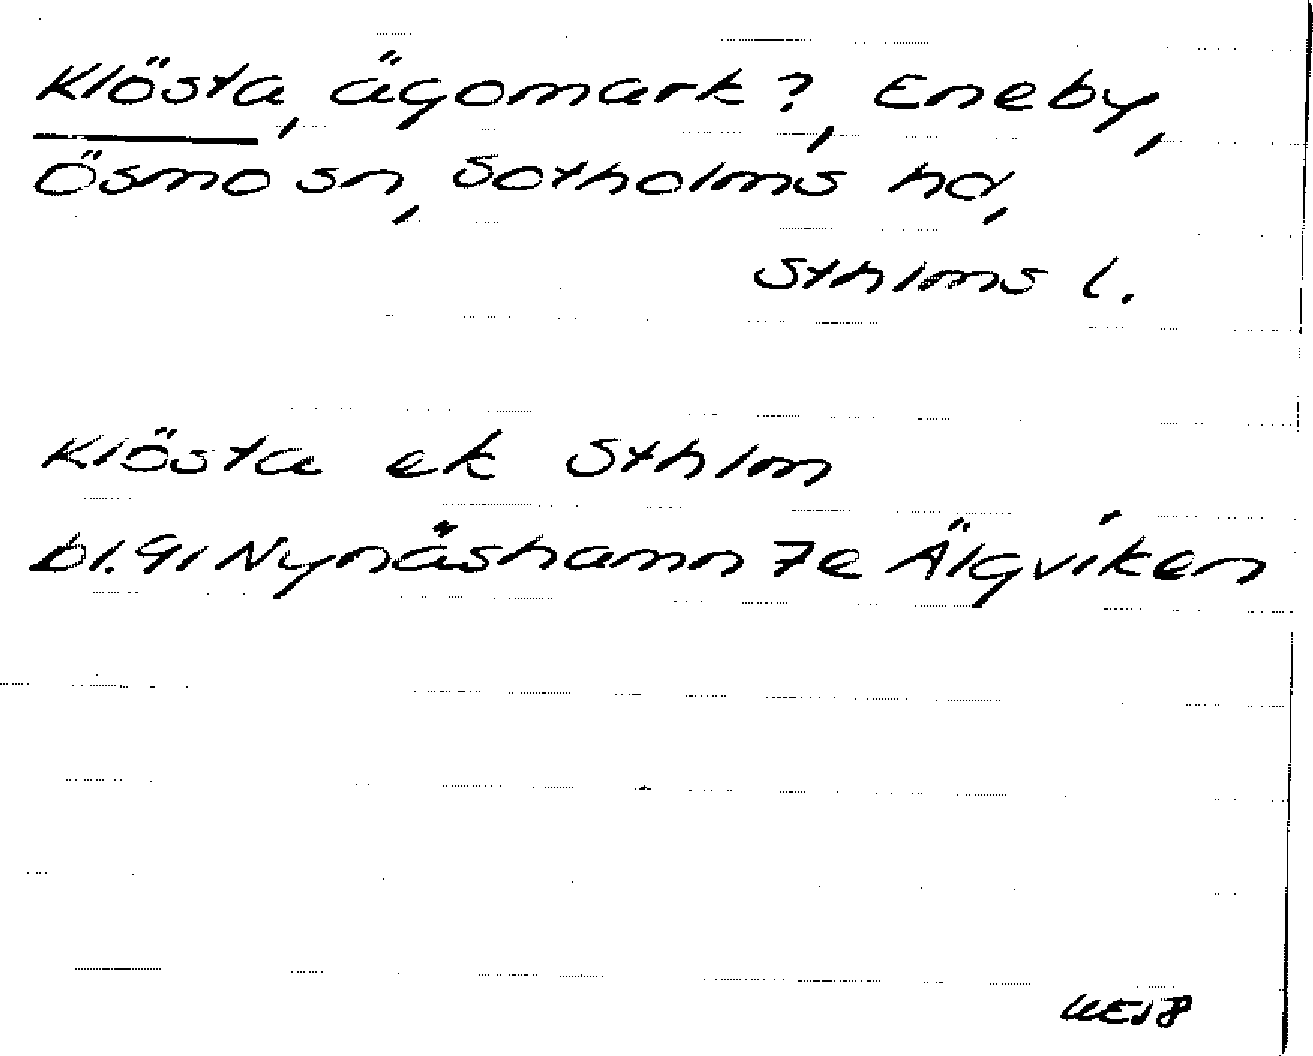 Klösta, ägomark?, Eneby,
Ösmo sn, Sotholms hd,
Sthlms l.
Klösta ek Sthlm
bl. 91 Nynäshamn 7e Älgviken